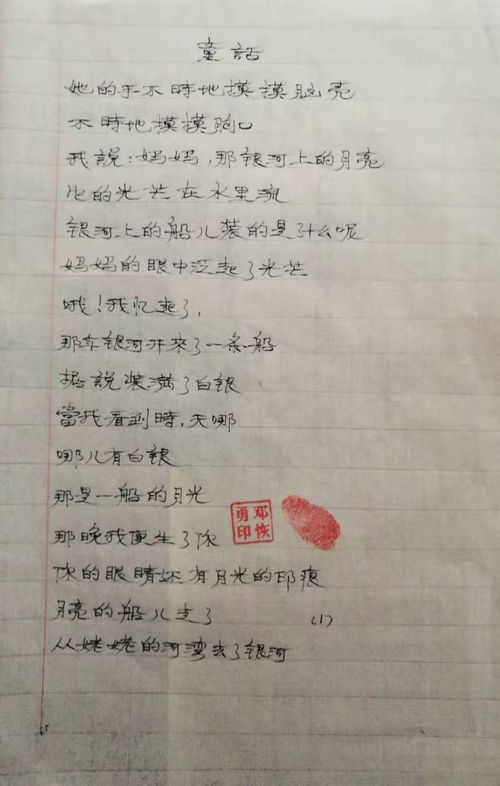 童話
她的手不時地摸摸脑壳
不時地摸摸胸口
我說：妈妈，那银河上的月亮
它的光芒在水里流
银河上的船儿装的是什么呢
妈妈的眼中泛起了光芒
哦！我忆起了，
那年银河开來了一条船
据說装满了白银
當我看到時，天哪
哪儿有白银
那是一船的月光
那晚我便生了你
你的眼睛还有月光的印痕
月亮的船儿走了
(1)
从姥姥的河湾去了银河
邓恢勇印